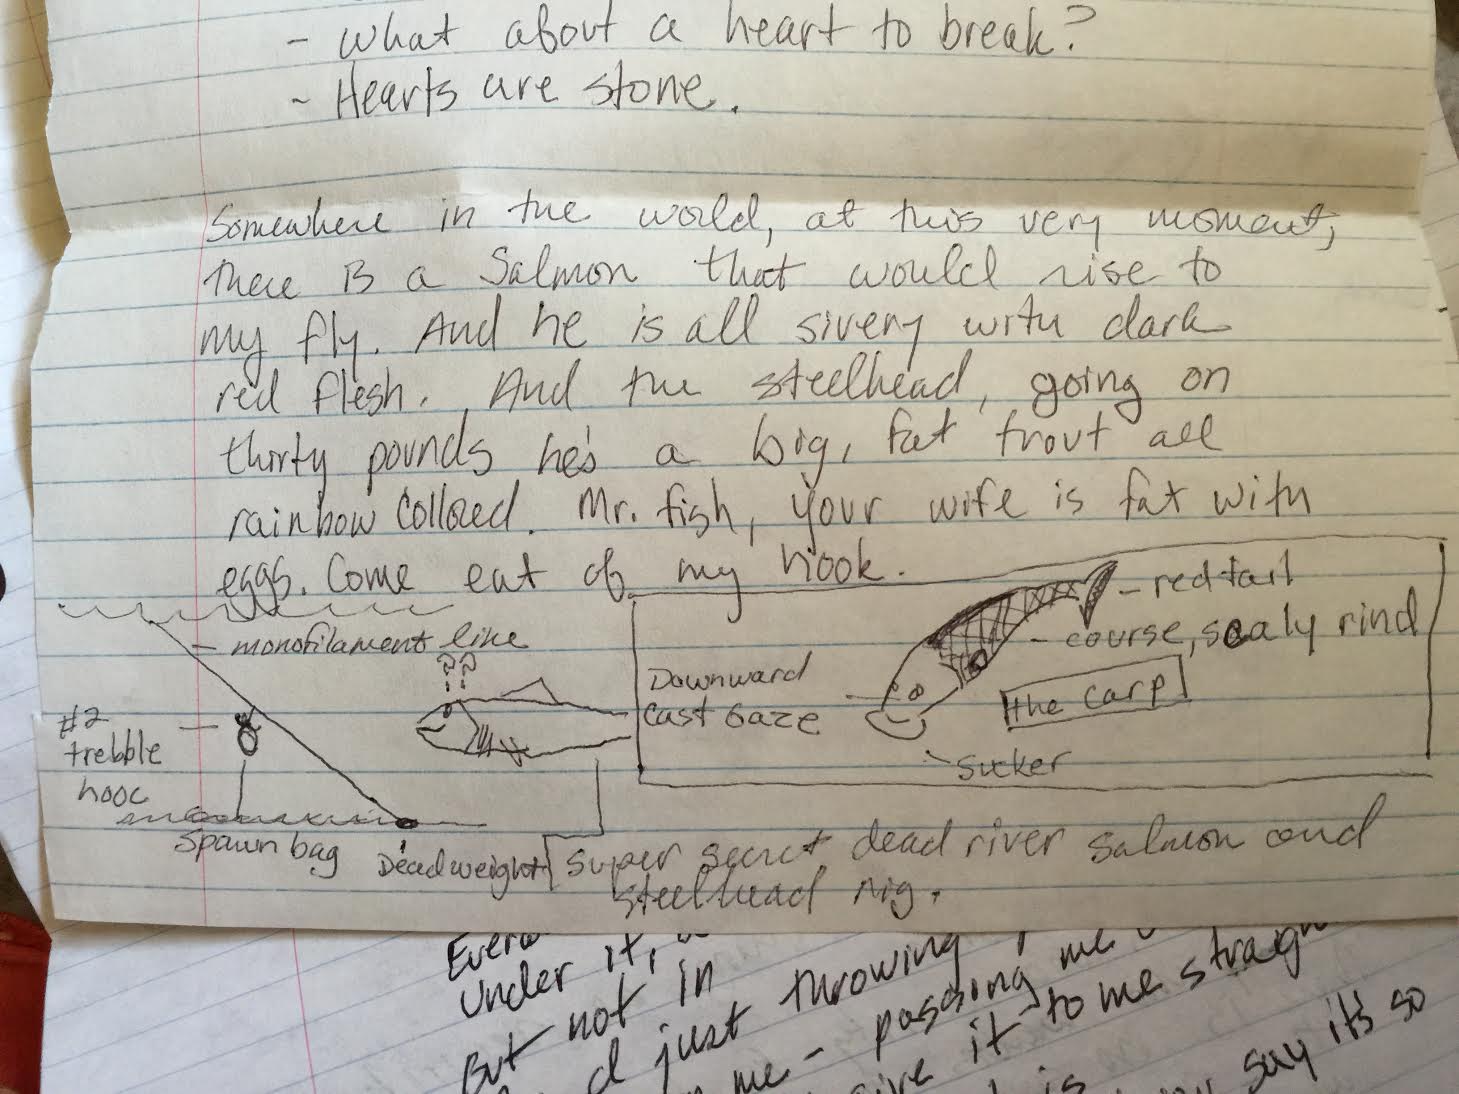 - What about a heart to break?
- Hearts are stone.
Somewhere in the world, at this very moment,
there is a Salmon that would rise to
my fly. And he is all sivery with dark
red flesh. And the steelhead, going on
thirty pounds he's a big, fat trout all
rainbow collored. Mr. fish, your wife is fat with
eggs. Come eat of my hook.
monofilament line
#2
trebble
hook
Spawn bag
Deadweight
Super secret dead river salmon and
steelhead rig.
Downward
Cast Gaze
red tail
course, scaly rind
the carp
sucker
under it,
But not in
just throwing
me - passing me
give it to me straight
say it's so